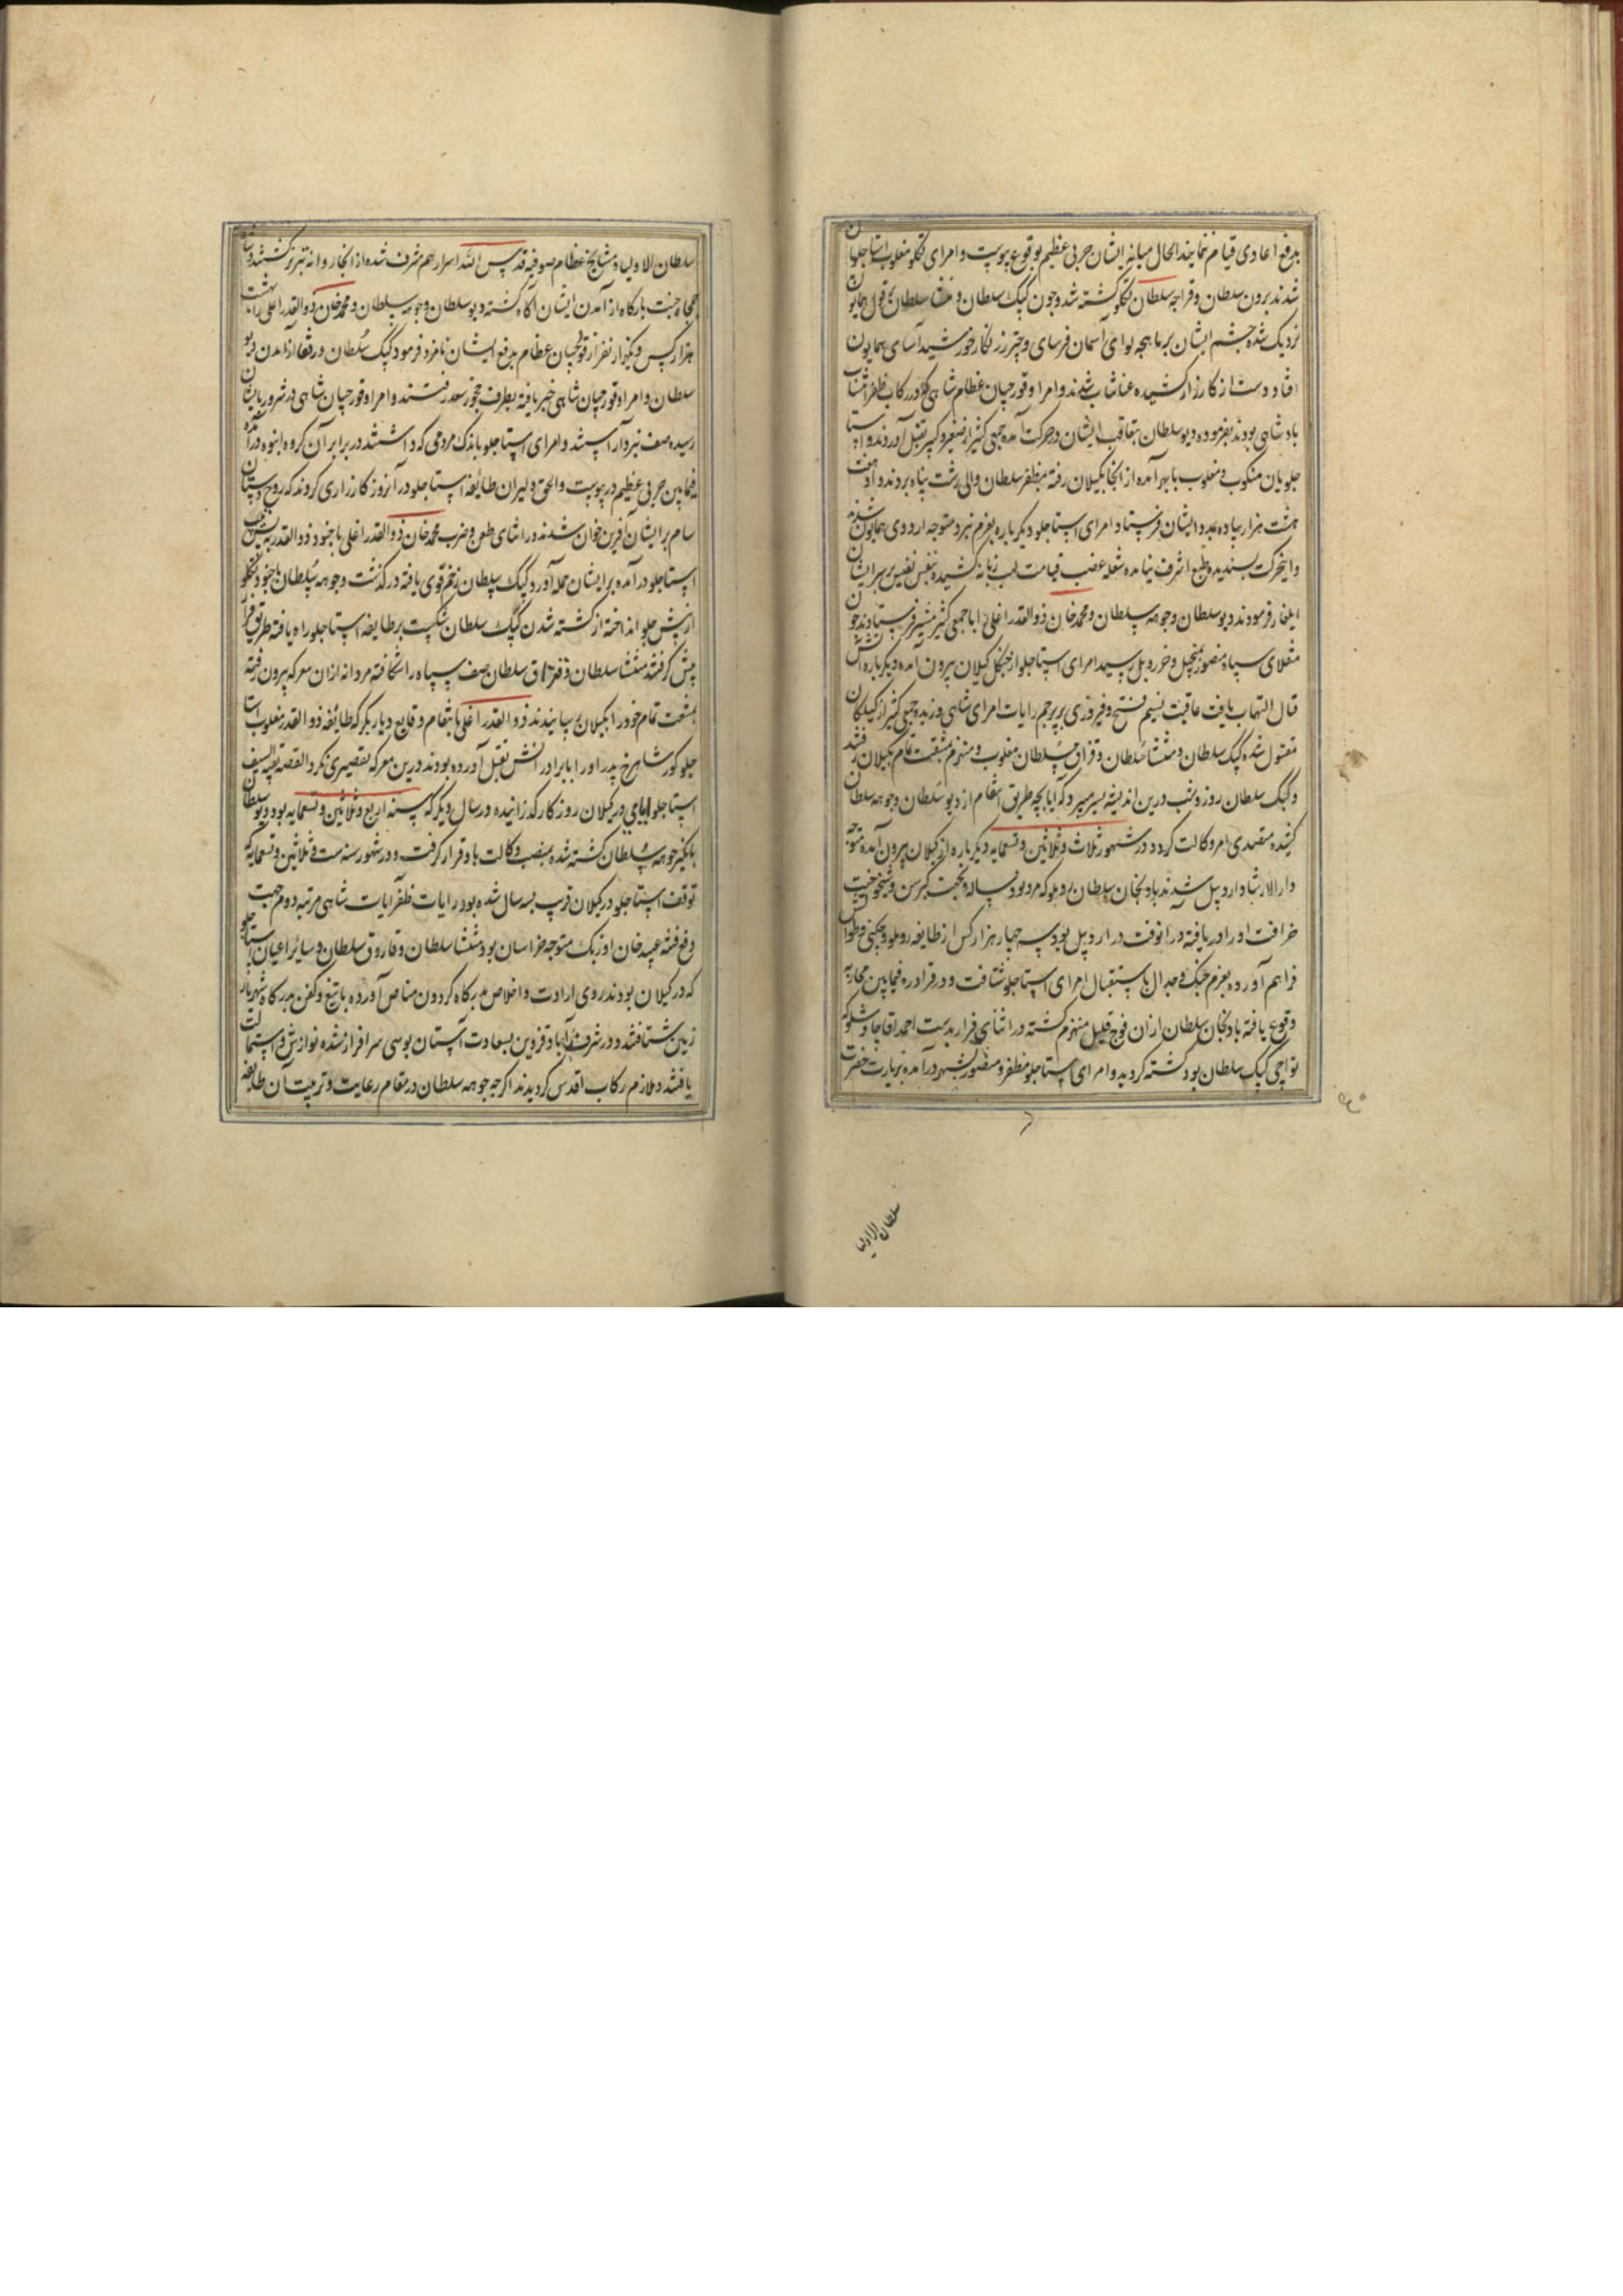 بدفع اعادی قیام نمایند الحال میانه ایشان حربی عظیم بوقوع پیوست و امرای تکلو مغلوب استاجلویان
شدند برون سلطان و قراجه سلطان تکلو کشته شد و چون کپک سلطان و منتشا سلطان بقول همایون
نزدیک شده چشم ایشان بر ماهچه لوای آسمان فرسای و چتر زرنکار خورشید آسای همایون
افتاد دست از کارزار کشیده عنانتاب شدند و امرا و قورچیان عظام شاهی که در رکاب ظفر انتساب
بادشاهی بودند بفرموده دیو سلطان بتعاقب ایشان در حرکت آمده جمعی کثیر از صغیر و کبیر بقتل آوردند و استا
جلویان منکوب و مغلوب بابهر آمده از انجا بکیلان رفته بمظفر سلطان والی رشت پناه بردند و او هفت
هشت هزار پیاده بمدد ایشان فرستاد امرای استاجلو دیکر باره بعزم نبرد متوجه اردوی همایون شدند
و اینحرکت پسندیده طبع اشرف نیامده شعله غضب قیامت لهب زبانه کشیده بنفس نفیس بر سر ایشان
ایلغار فرمودند دیو سلطان و چوهه سلطان و محمد خان ذوالقدر اغلی را با جمعی کثیر پیشتر فرستادند چون
منقلای سپاه منصور بمنجیل و خرزویل رسید امرای استاجلو از جنکل کیلان بیرون آمده دیکر باره آتش
قتال التهاب یافت عاقبت نسیم فتح و فیروزی بر پرچم رایات امرای شاهی وزیده جمعی کثیر از کیلکان
مقتول شده کپک سلطان و منتشا سلطان و قزاق سلطان مغلوب و منهزم بمشقت تمام بکیلان رفتند
و کپک سلطان روز و شب درین اندیشه بسر میبرد که آیا بچه طریق انتقام از دیو سلطان و چوهه سلطان
کشیده متصدی امر وکالت کردد در شهور ثلاث و ثلاثین و تسعمایه دیکر باره از کیلان بیرون آمده متوجه
دار الارشاد اردبیل شدند بادنجان سلطان روملو که مرد بود نود ساله و بجهت کبر سن و شیخوخیت
خرافت او را دریافته در انوقت در اردبیل بود سه چهار هزار کس از طایفه روملو و چکنی و طوالش
فراهم آورده بعزم جنک و جدال باستقبال امرای استاجلو شتافت و در قرادره فیمابین محاربه
وقوع یافته بادنجان سلطان از ان فوج قلیل منهزم کشته در اثنای فرار بدست احمد اقا چاوشلو که
تواچی کپک سلطان بود کشته کردید و امرای استاجلو مظفر و منصور بشهر درآمده بزیارت حضرت
سلطان الاولیا
سلطان الاولیا و مشایخ عظام صوفیه قدس الله اسرارهم مشرف شده از انجا روانه تبریز کشتند و شاه
جمجاه جنت بارکاه از آمدن ایشان آکاه کشته دیو سلطان و چوهه سلطان و محمد خان ذوالقدر اغلی را با هشت
هزار کس و یکهزار نفر از قورچیان عظام بدفع ایشان نامزد فرمود کپک سلطان و رفقا از آمدن دیو
سلطان و امرا و قورچیان شاهی خبر یافته بطرف نخجور سعد رفتند و امرا و قورچیان شاهی در شرور بایشان
رسیده صف نبرد آراستند و امرای استاجلو باندک مردمی که داشتند در برابر آن کروه انبوه درآمده
فیمابین حربی عظیم درپیوست و الحق دلیران طایفه استاجلو در آنروز کارزاری کردند که روح دستان
سام بر ایشان آفرین خوان شد نه در اثنای طعن و ضرب محمد خان ذوالقدر اغلی با جنود ذوالقدر به پس
استاجلو درآمده بر ایشان حمله آورد و کپک سلطان زخم قوی یافته درکذشت و چوهه سلطان با جنود تکلو
از پیش جلو انداخته از کشته شدن کپک سلطان شکست بر طایفه استاجلو راه یافته طریق فرار
پیش کرفتند منتشا سلطان و قزاق سلطان صف سپاه را شکافته مردانه از ان معرکه بیرون رفته
بمشقت تمام خود را بکیلان رسانیدند ذوالقدر اغلی بانتقام وقایع دیاربکر که طایفه ذوالقدر مغلوب استا
جلو کور شاهرخ پدر او را با برادرانش بقتل آورده بودند درین معرکه تقصیری نکرد القصه بقیة السیف
استاجلو ایامی در کیلان روزکار کذرانیده در سال دیکر که سنه اربع و ثلاثین و تسعمایه بود دیو سلطان
بانکیز چوهه سلطان کشته شده منصب وکالت باو قرار کرفت و در شهور سنه ست و ثلاثین و تسعمایه که
توقف استاجلو در کیلان قریب بسه سال شده بود رایات ظفر آیات شاهی مرتبه دوم جهت
دفع فتنه عبید خان اوزبک متوجه خراسان بود منتشا سلطان و قازوق سلطان و سایر اعیان استاجلو
که در کیلان بودند روی ارادت و اخلاص بدرکاه کردون مناص آورده با تیغ و کفن بدرکاه شهریار
زمین شتافتند و در شرف آباد قزوین بسعادت آستان بوسی سرافراز شده نوازش و استمالت
یافتند و ملازم رکاب اقدس کردیدند اکرچه چوهه سلطان در مقام رعایت و تربیت آن طایفه